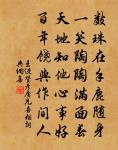 數珠在手鹿随身
一笑陶陶滿面春
天地知他心事好
百年饒與作閒人